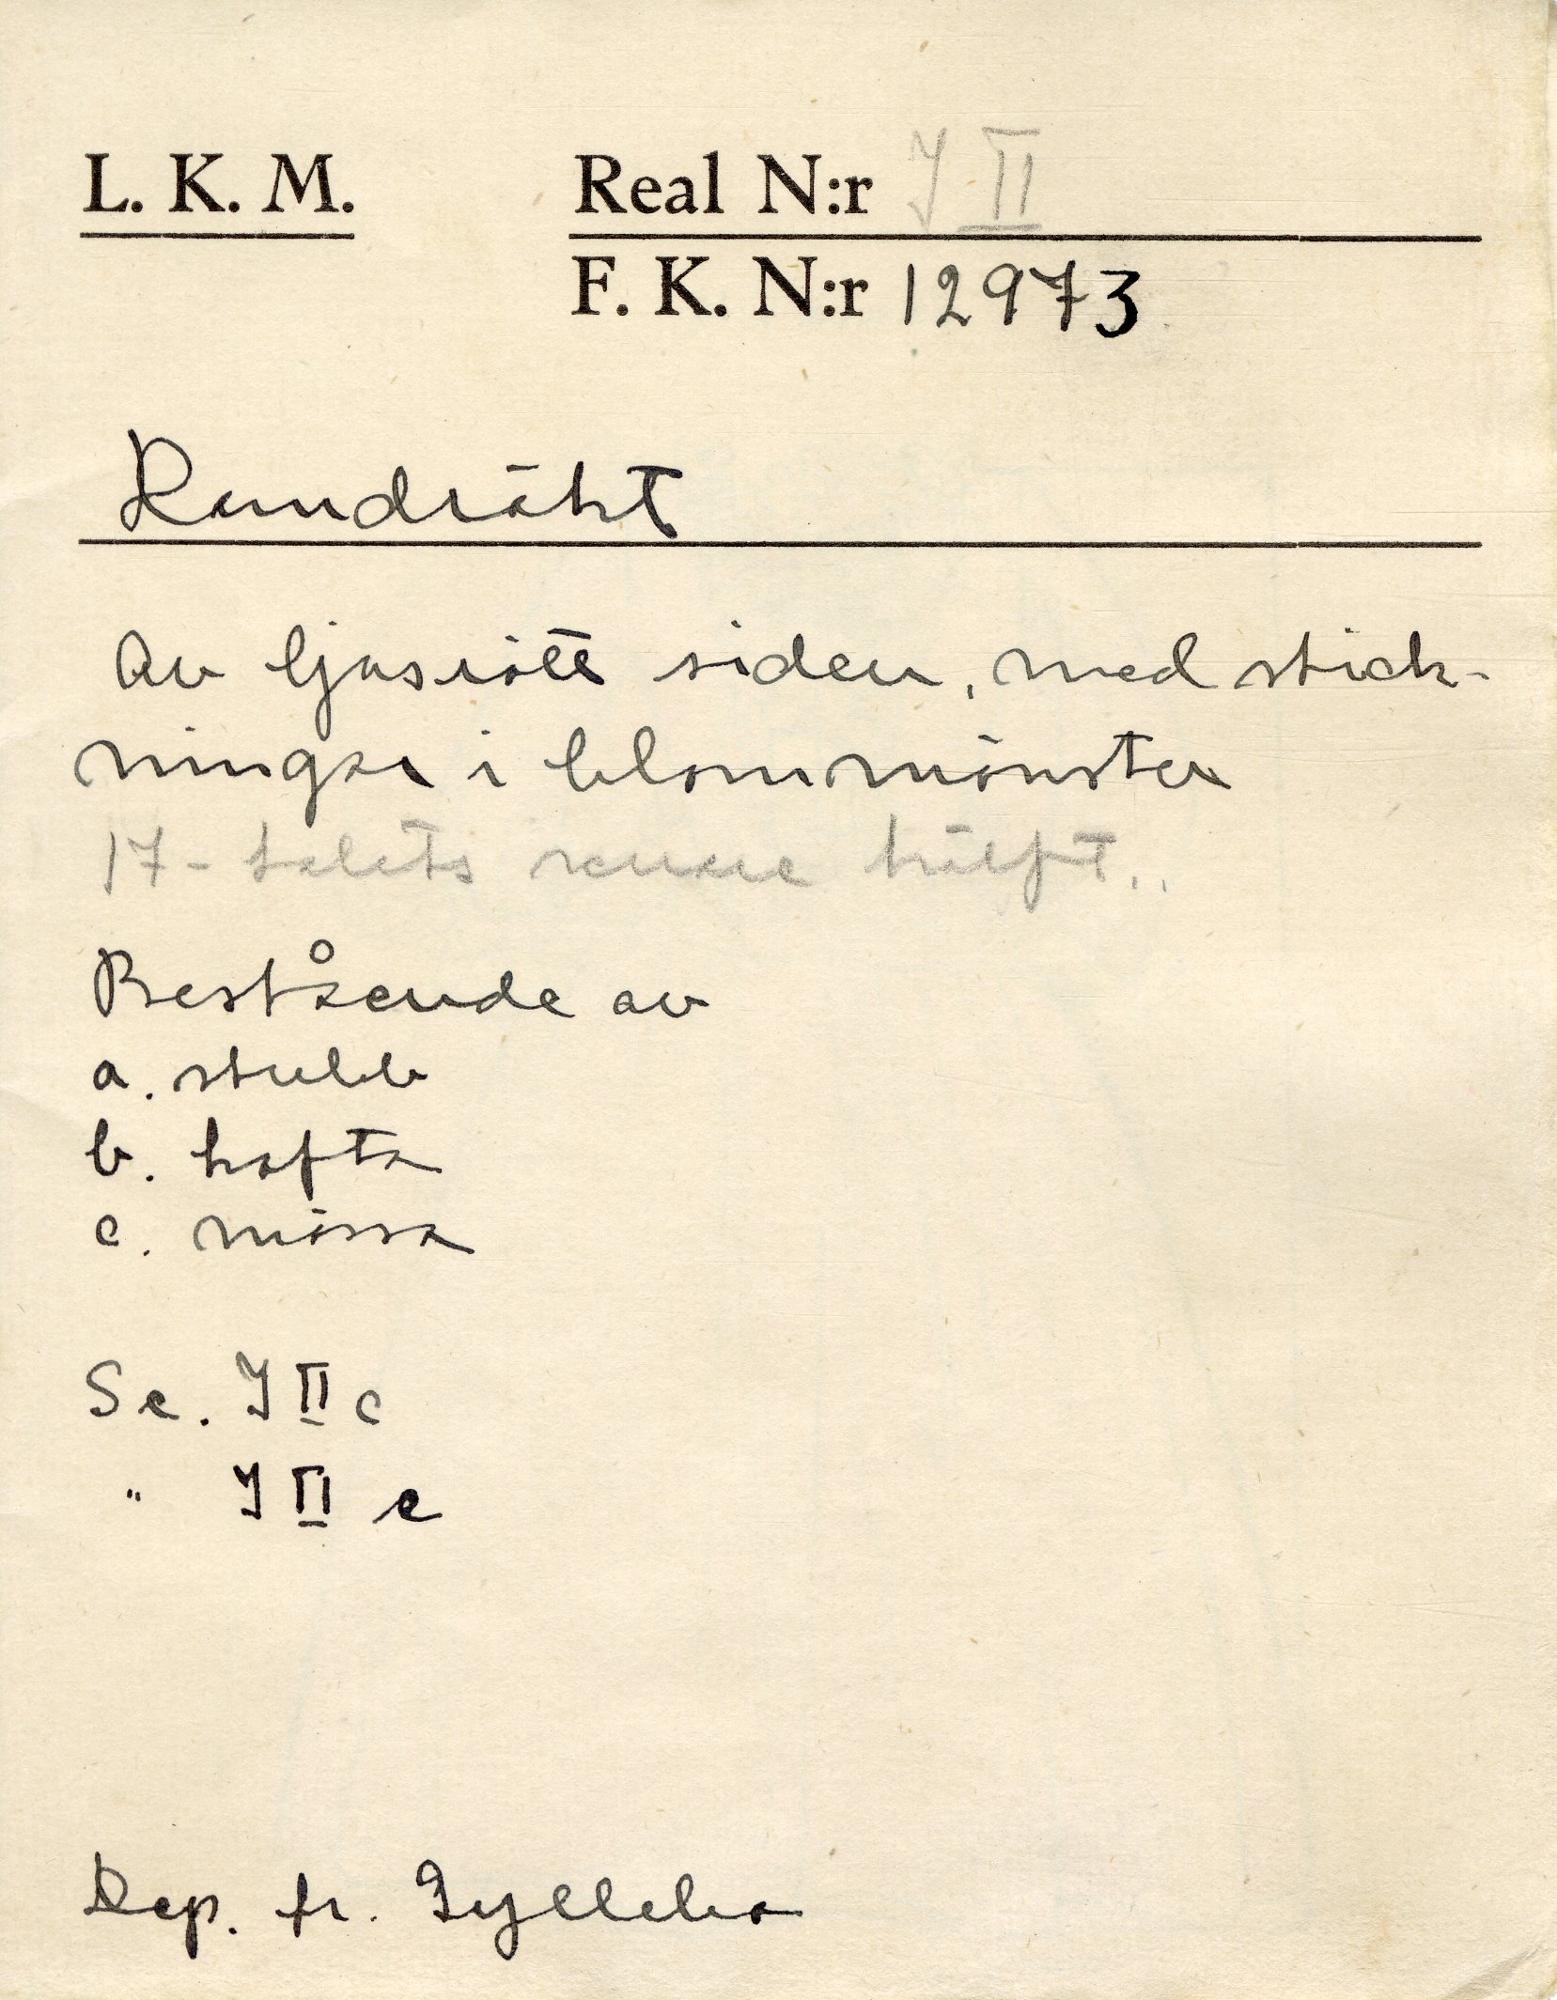 L. K. M. Real N:r I II
F. K. N:r 12973
Damdräkt
Av ljusrött siden, med stick-
ningar i blommönster
17-talets senare hälft..
Bestående av
a. stubb
b. kofta
c. mössa
Se. I II c
" I II e
Dep. fr. Gyllebo